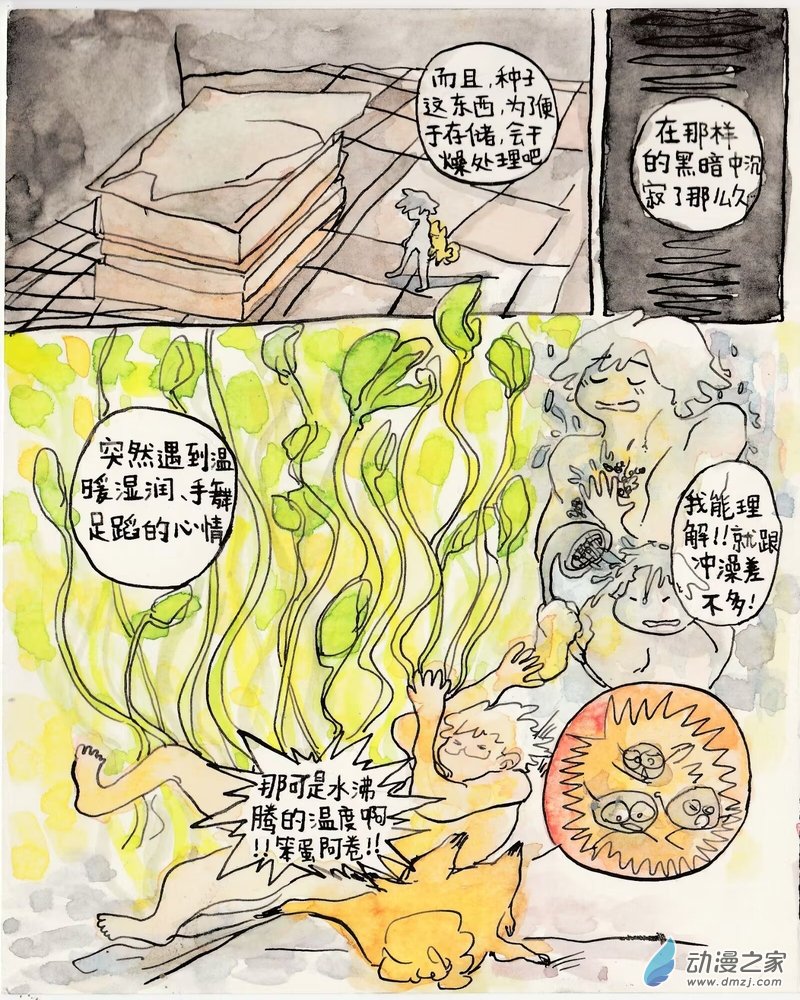 而且，种子
这东西，为了便
于存储，会干
燥处理吧
在那样
的黑暗中沉
寂了那么久
突然遇到温
暖湿润、手舞
足蹈的心情
我能理
解!!就跟
冲澡差
不多!
那可是水沸
腾的温度啊
!!笨蛋阿卷!!
动漫之家
www.dmzj.com